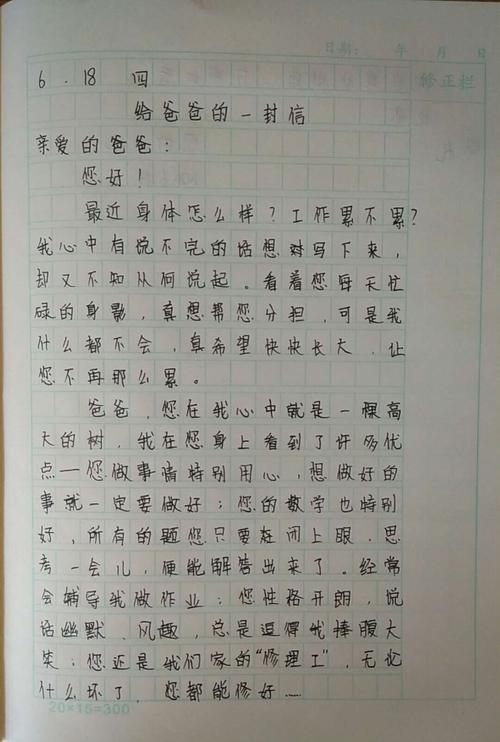 日期： 年 月 日
修正栏
6.18 四
给爸爸的一封信
亲爱的爸爸：
您好！
最近身体怎么样？工作累不累？
我心中有说不完的话想对写下来，
却又不知从何说起。看着您每天忙
碌的身影，真想帮您分担，可是我
什么都不会，真希望快快长大，让
您不再那么累。
爸爸，您在我心中就是一棵高
大的树，我在您身上看到了许多优
点—您做事情特别用心，想做好的
事就一定要做好；您的数学也特别
好，所有的题您只要在闭上眼，思
考一会儿，便能解答出来了。经常
会辅导我做作业；您性格开朗，说
话幽默、风趣，总是逗得我捧腹大
笑；您还是我们家的“修理工”，无忆
什么坏了 您都能修好……
20×15=300